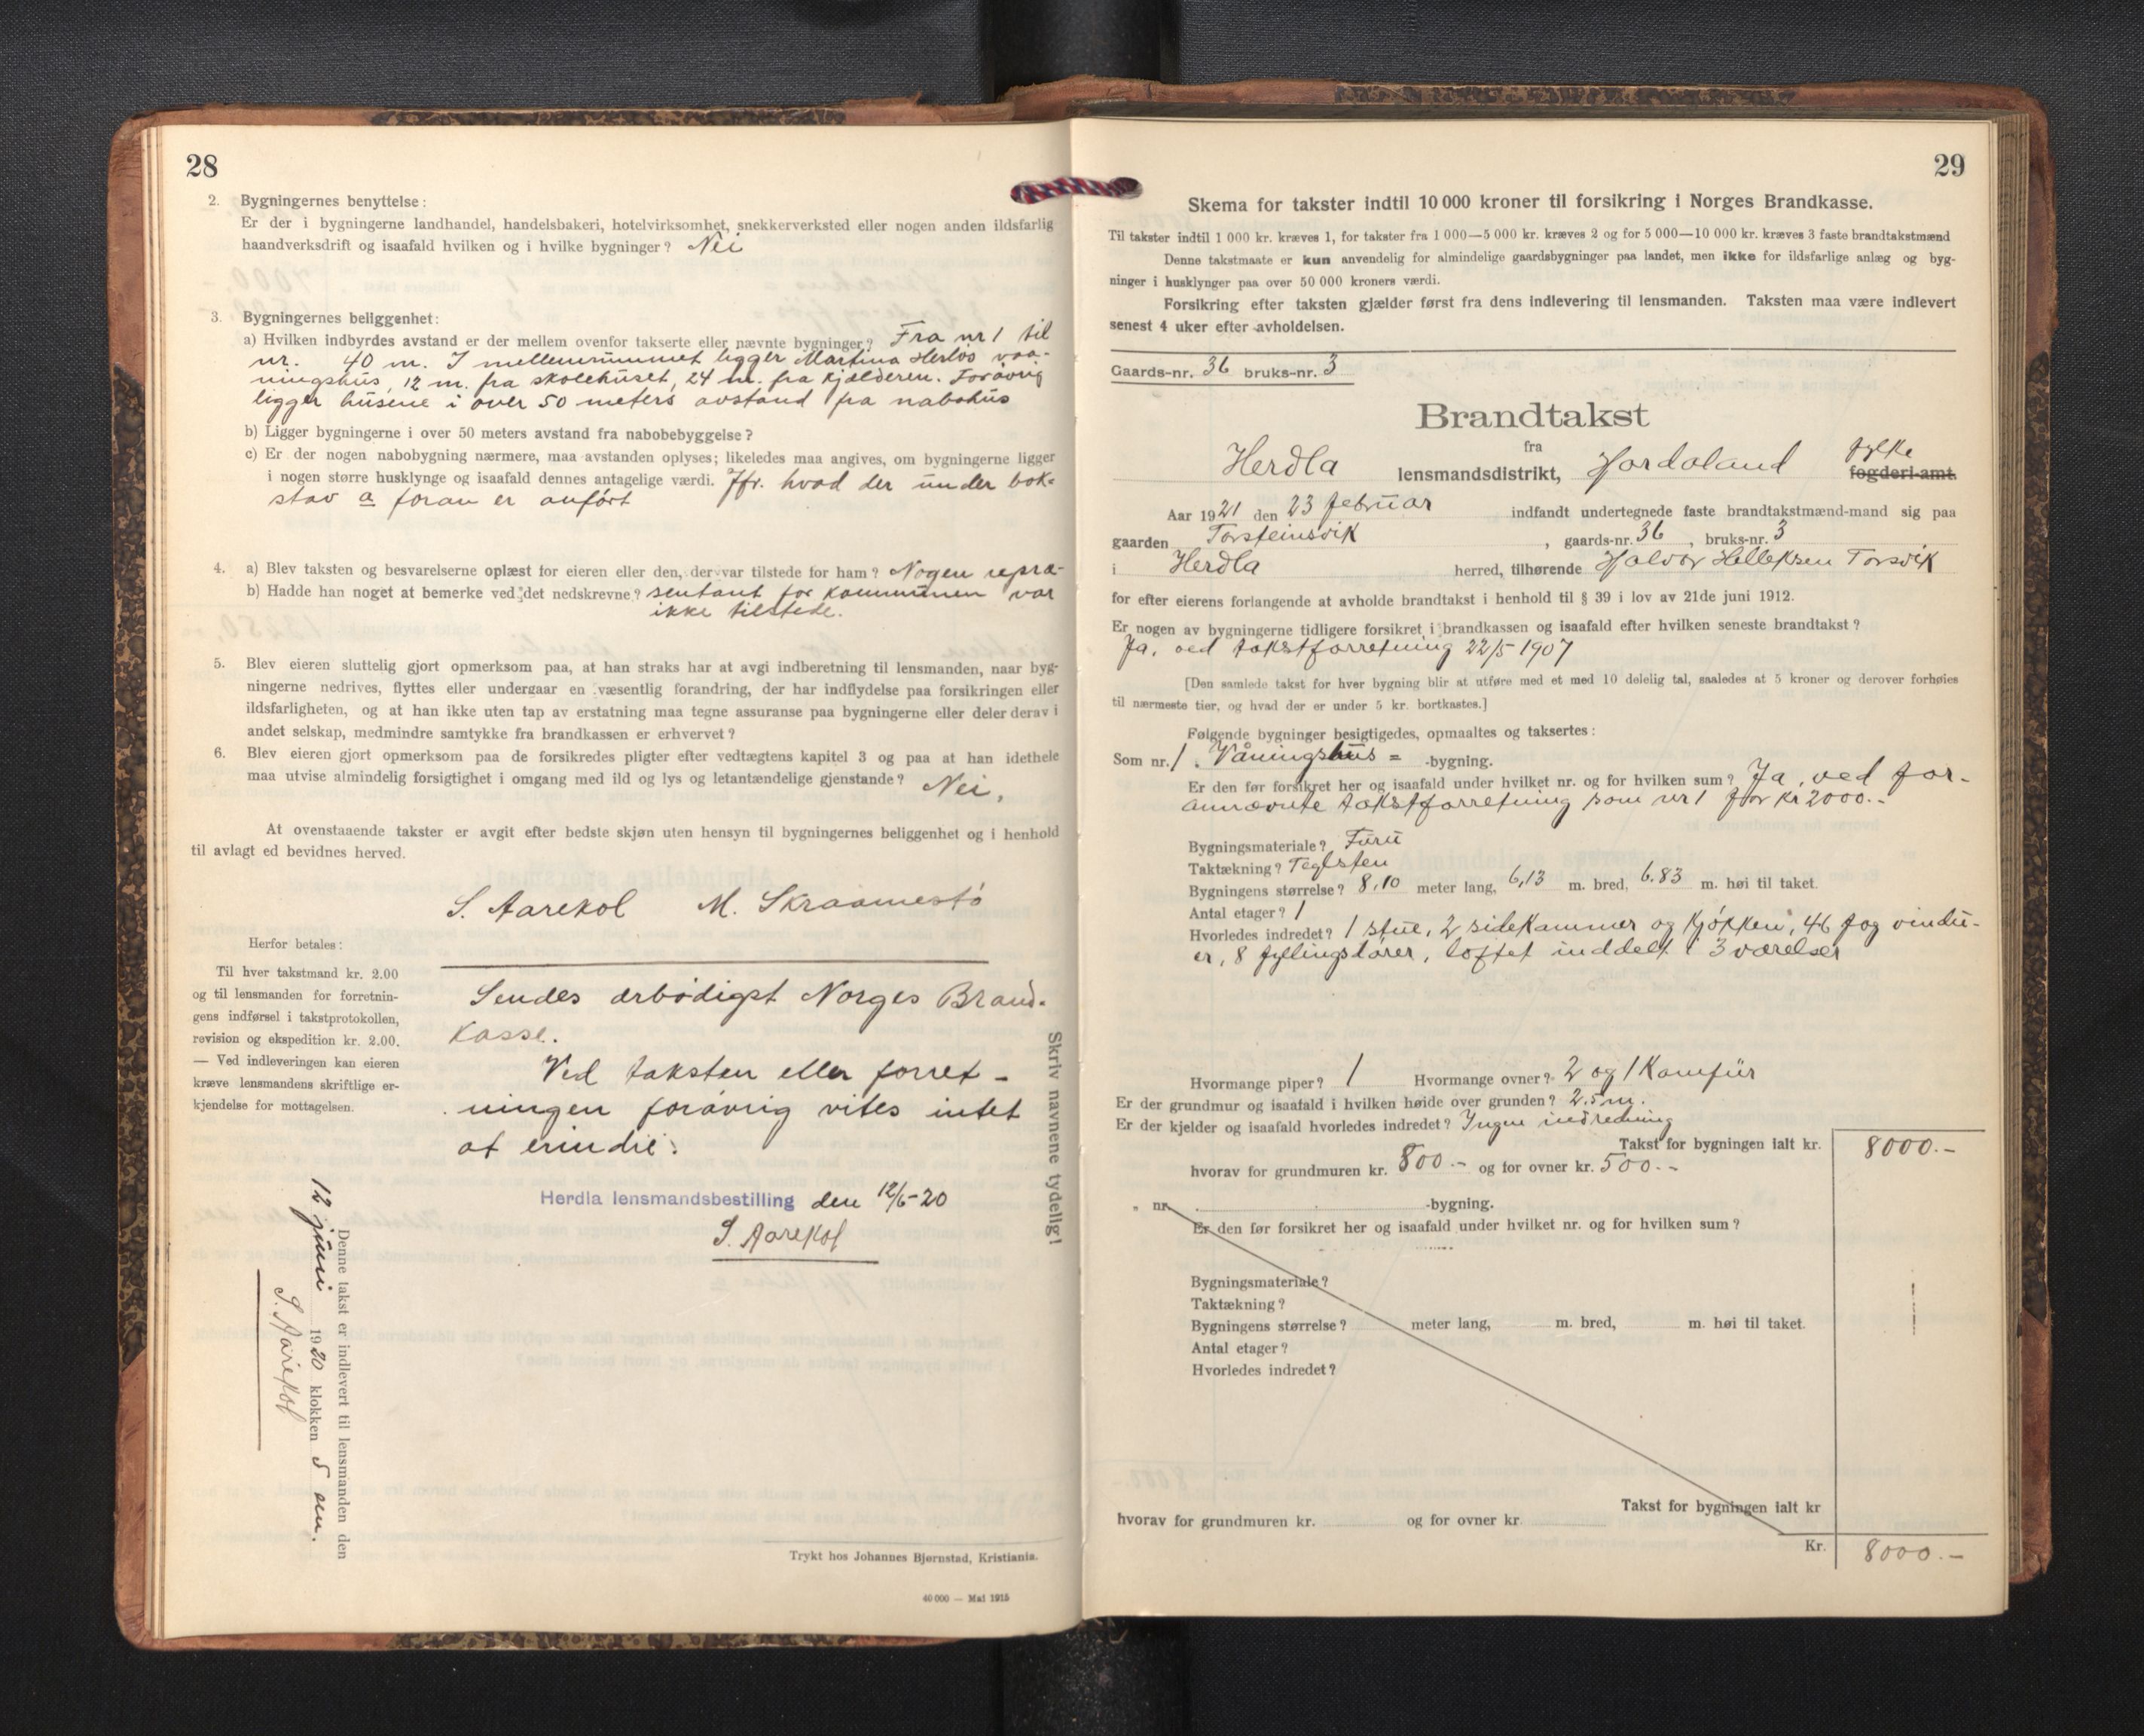 28
2. Bygningernes benyttelse:
Er der i bygningerne landhandel, handelsbakeri, hotelvirksomhet, snekkerverksted eller nogen anden ildsfarlig
haandverksdrift og isaafald hvilken og i hvilke bygninger? Nei
3. Bygningernes beliggenhet:
a) Hvilken indbyrdes avstand er der mellem ovenfor takserte eller nævnte bygninger? Fra nr 1 til
nr. 40 m. I mellemrummet ligger Martina Herlös vaa-
ningshus, 12 m. fra skolehuset, 24 m. fra kjælderen. Forøvrig
ligger husene i over 50 meters avstand fra nabohus
b) Ligger bygningerne i over 50 meters avstand fra nabobebyggelse?
c) Er der nogen nabobygning nærmere, maa avstanden oplyses; likeledes maa angives, om bygningerne ligger
i nogen større husklynge og isaafald dennes antagelige værdi. Jfr. hvad der under bok-
stav a foran er anført
4. a) Blev taksten og besvarelserne oplæst for eieren eller den, der var tilstede for ham? Nogen repræ-
b) Hadde han noget at bemerke ved det nedskrevne? sentant for kommunen var
ikke tilstede.
5. Blev eieren sluttelig gjort opmerksom paa, at han straks har at avgi indberetning til lensmanden, naar byg-
ningerne nedrives, flyttes eller undergaar en væsentlig forandring, der har indflydelse paa forsikringen eller
ildsfarligheten, og at han ikke uten tap av erstatning maa tegne assuranse paa bygningerne eller deler derav i
andet selskap, medmindre samtykke fra brandkassen er erhvervet?
6. Blev eieren gjort opmerksom paa de forsikredes pligter efter vedtægtens kapitel 3 og paa at han idethele
maa utvise almindelig forsigtighet i omgang med ild og lys og letantændelige gjenstande? Nei.
At ovenstaaende takster er avgit efter bedste skjøn uten hensyn til bygningernes beliggenhet og i henhold
til avlagt ed bevidnes herved.
S. Aarekol M. Skraamestø
Herfor betales:
Til hver takstmand kr. 2.00
og til lensmanden for forretnin-
gens indførsel i takstprotokollen,
revision og ekspedition kr. 2.00.
— Ved indleveringen kan eieren
kræve lensmandens skriftlige er-
kjendelse for mottagelsen.
Sendes ærbødigst Norges Brand-
kasse.
Ved taksten eller forret-
ningen forøvrig vites intet
at erindre.
Herdla lensmandsbestilling den 12/6-20
S. Aarekol
Skriv navnene tydelig!
Denne takst er indlevert til lensmanden den
12 juni 1920 klokken 5 em.
S. Aarekol
Trykt hos Johannes Bjørnstad, Kristiania.
40 000 — Mai 1915
29
Skema for takster indtil 10 000 kroner til forsikring i Norges Brandkasse.
Til takster indtil 1 000 kr. kræves 1, for takster fra 1 000—5 000 kr. kræves 2 og for 5 000—10 000 kr. kræves 3 faste brandtakstmænd
Denne takstmaate er kun anvendelig for almindelige gaardsbygninger paa landet, men ikke for ildsfarlige anlæg og byg-
ninger i husklynger paa over 50 000 kroners værdi.
Forsikring efter taksten gjælder først fra dens indlevering til lensmanden. Taksten maa være indlevert
senest 4 uker efter avholdelsen.
Gaards-nr. 36 bruks-nr. 3
Brandtakst
fra
Herdla lensmandsdistrikt, Hordaland fylke
fogderi-amt.
Aar 1921 den 23 februar indfandt undertegnede faste brandtakstmænd-mand sig paa
gaarden Torsteinsvik, gaards-nr. 36, bruks-nr. 3
i Herdla herred, tilhørende Halvor Helleksen Torsvik
for efter eierens forlangende at avholde brandtakst i henhold til § 39 i lov av 21de juni 1912.
Er nogen av bygningerne tidligere forsikret i brandkassen og isaafald efter hvilken seneste brandtakst?
Ja, ved takstforretning 22/5-1907
[Den samlede takst for hver bygning blir at utføre med et med 10 delelig tal, saaledes at 5 kroner og derover forhøies
til nærmeste tier, og hvad der er under 5 kr. bortkastes.]
Følgende bygninger besigtigedes, opmaaltes og taksertes:
Som nr. 1. Våningshus = -bygning.
Er den før forsikret her og isaafald under hvilket nr. og for hvilken sum? Ja, ved for-
annævnte takstforretning som nr 1 for kr 2000.-
Bygningsmateriale? Furu
Taktækning? Teglsten
Bygningens størrelse? 8,10 meter lang, 6,13 m. bred, 6.83 m. høi til taket.
Antal etager? 1
Hvorledes indredet? 1 stue, 2 sidekammer og kjøkken, 46 fag vindu-
er, 8 fyllingsdører, loftet inddelt i 3 værelser
Hvormange piper? 1 Hvormange ovner? 2 og 1 Komfür
Er der grundmur og isaafald i hvilken høide over grunden? 2.5 m.
Er der kjelder og isaafald hvorledes indredet? Ingen indredning
Takst for bygningen ialt kr. 8000.-
hvorav for grundmuren kr. 800.- og for ovner kr. 500.-
„ nr. -bygning.
Er den før forsikret her og isaafald under hvilket nr. og for hvilken sum?
Bygningsmateriale?
Taktækning?
Bygningens størrelse? meter lang, m. bred, m. høi til taket.
Antal etager?
Hvorledes indredet?
Takst for bygningen ialt kr
hvorav for grundmuren kr. og for ovner kr.
Kr. 8000.-